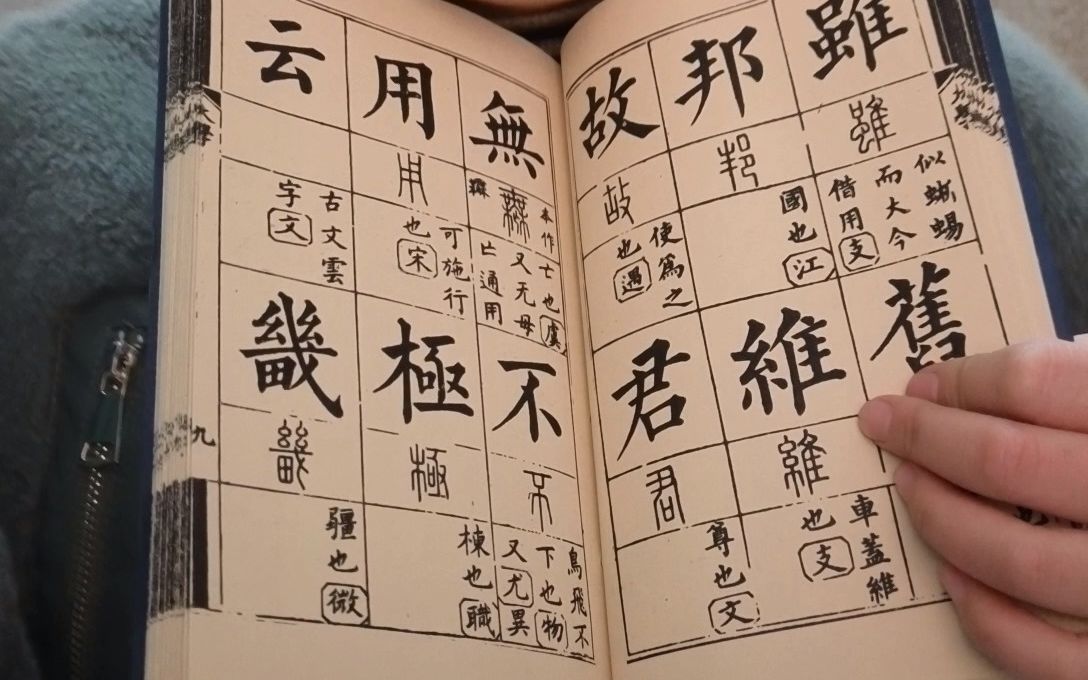 雖
雖
似蜥蜴
而大今
借用支
舊
邦
邦
國也江
維
維
車蓋維
也支
故
故
使為之
也遇
君
君
尊也文
無
無
本作
亡也虞
又无毋
亡通用
不
不
鳥飛不
下也物
又尤異
用
用
可施行
也宋
極
極
棟也職
云
古文雲
字文
畿
畿
疆也微
大學
九